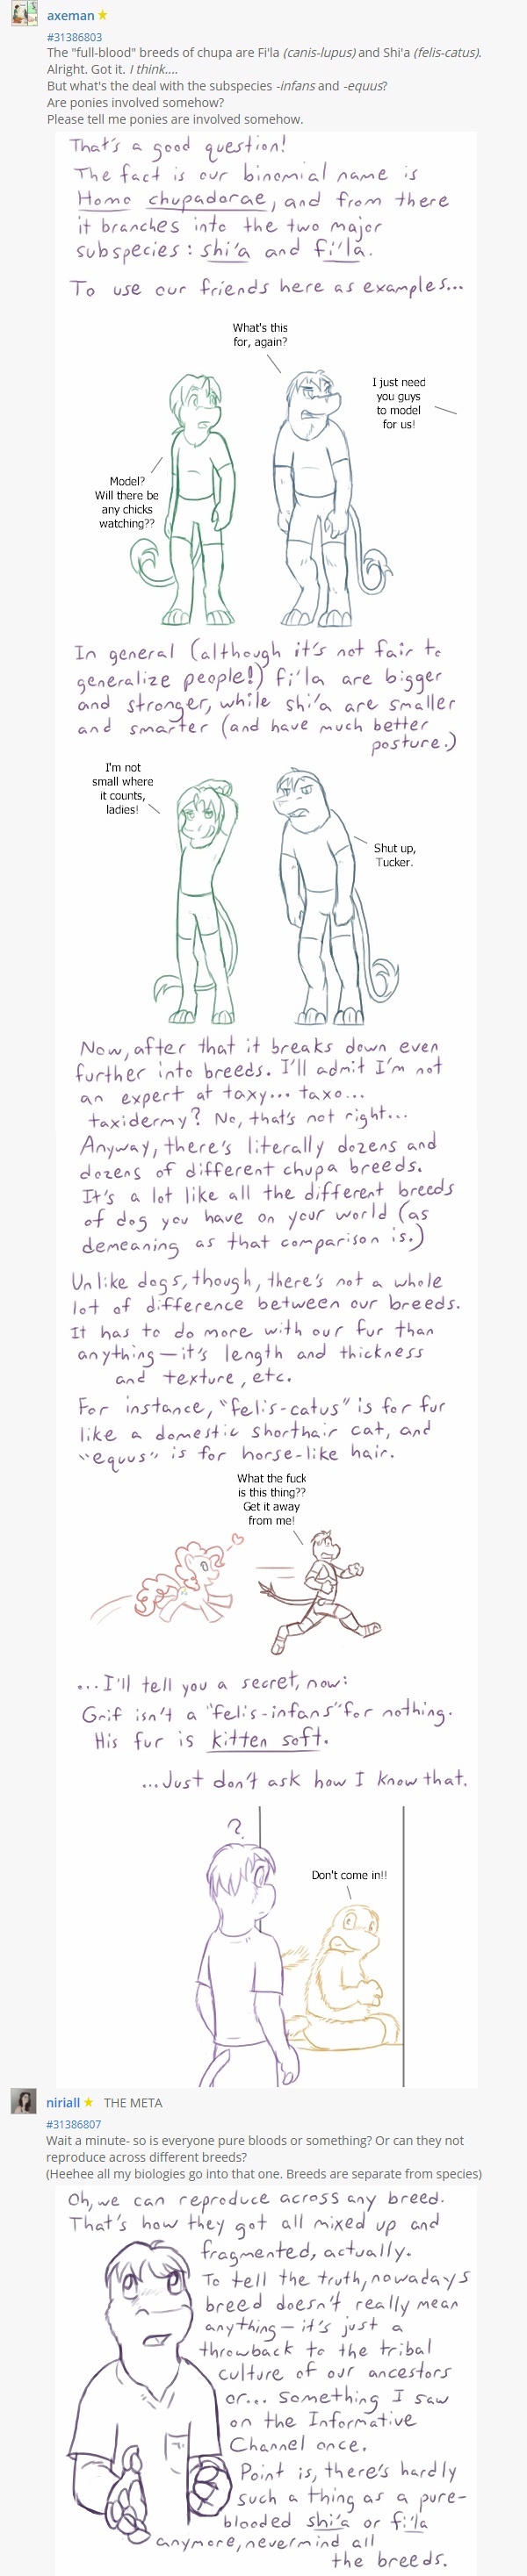 axeman
#31386803
The "full-blood" breeds of chupa are Fi'la (canis-lupus) and Shi'a (felis-catus).
Alright. Got it. I think....
But what's the deal with the subspecies -infans and -equus?
Are ponies involved somehow?
Please tell me ponies are involved somehow.
That's a good question!
The fact is our binomial name is
Homo chupadorae, and from there
it branches into the two major
subspecies: shi'a and fi'la.
To use our friends here as examples...
What's this
for, again?
I just need
you guys
to model
for us!
Model?
Will there be
any chicks
watching??
In general (although it's not fair to
generalize people!) fi'la are bigger
and stronger, while shi'a are smaller
and smarter (and have much better
posture.)
I'm not
small where
it counts,
ladies!
Shut up,
Tucker.
Now, after that it breaks down even
further into breeds. I'll admit I'm not
an expert at taxy... taxo...
taxidermy? No, that's not right...
Anyway, there's literally dozens and
dozens of different chupa breeds.
It's a lot like all the different breeds
of dog you have on your world (as
demeaning as that comparison is.)
Unlike dogs, though, there's not a whole
lot of difference between our breeds.
It has to do more with our fur than
anything—it's length and thickness
and texture, etc.
For instance, "felis-catus" is for fur
like a domestic shorthair cat, and
"equus" is for horse-like hair.
What the fuck
is this thing??
Get it away
from me!
...I'll tell you a secret, now:
Grif isn't a "felis-infans" for nothing.
His fur is kitten soft.
...Just don't ask how I know that.
?
Don't come in!!
niriall THE META
#31386807
Wait a minute- so is everyone pure bloods or something? Or can they not
reproduce across different breeds?
(Heehee all my biologies go into that one. Breeds are separate from species)
Oh, we can reproduce across any breed.
That's how they got all mixed up and
fragmented, actually.
To tell the truth, nowadays
breed doesn't really mean
anything—it's just a
throwback to the tribal
culture of our ancestors
or... something I saw
on the Informative
Channel once.
Point is, there's hardly
such a thing as a pure-
blooded shi'a or fi'la
anymore, nevermind all
the breeds.